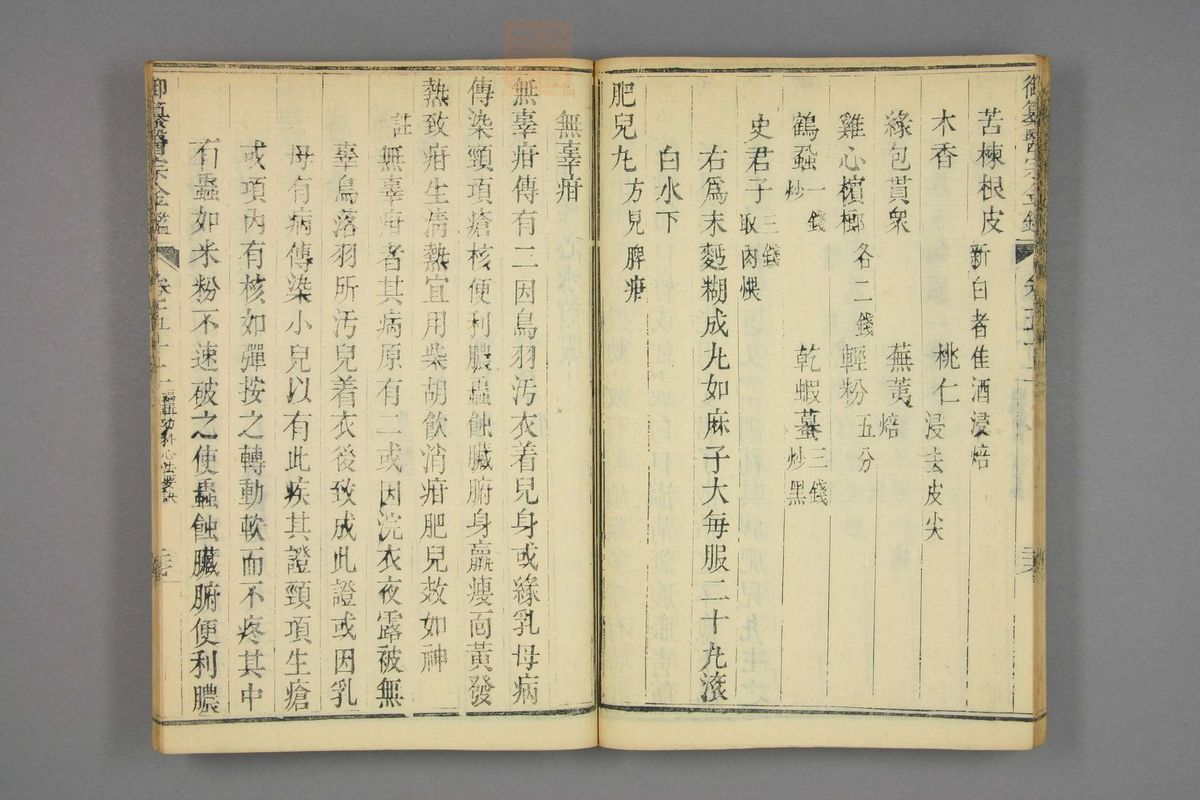 苦楝根皮 新白者佳酒浸焙
木香 桃仁 浸去皮尖
綠包貫衆 蕪荑 焙
雞心檳榔 各二錢 輕粉 五分
鶴蝨 一錢炒 乾蝦蟇 三錢炒黑
史君子 三錢取肉煨
右爲末麪糊成丸如麻子大每服二十丸滚
白水下
肥兒丸 方見脾疳
無辜疳
無辜疳傳有二因鳥羽汚衣着兒身或緣乳母病
傳染頸項瘡核便利膿蟲蝕臟腑身羸瘦面黃發
熱致疳生清熱宜用柴胡飲消疳肥兒效如神
註 無辜疳者其病原有二或因浣衣夜露被無
辜鳥落羽所汚兒着衣後致成此證或因乳
母有病傳染小兒以有此疾其證頸項生瘡
或項內有核如彈按之轉動軟而不疼其中
有蟲如米粉不速破之使蟲蝕臟腑便利膿
御纂醫宗金鑑 卷之五十二 編輯幼科心法要訣